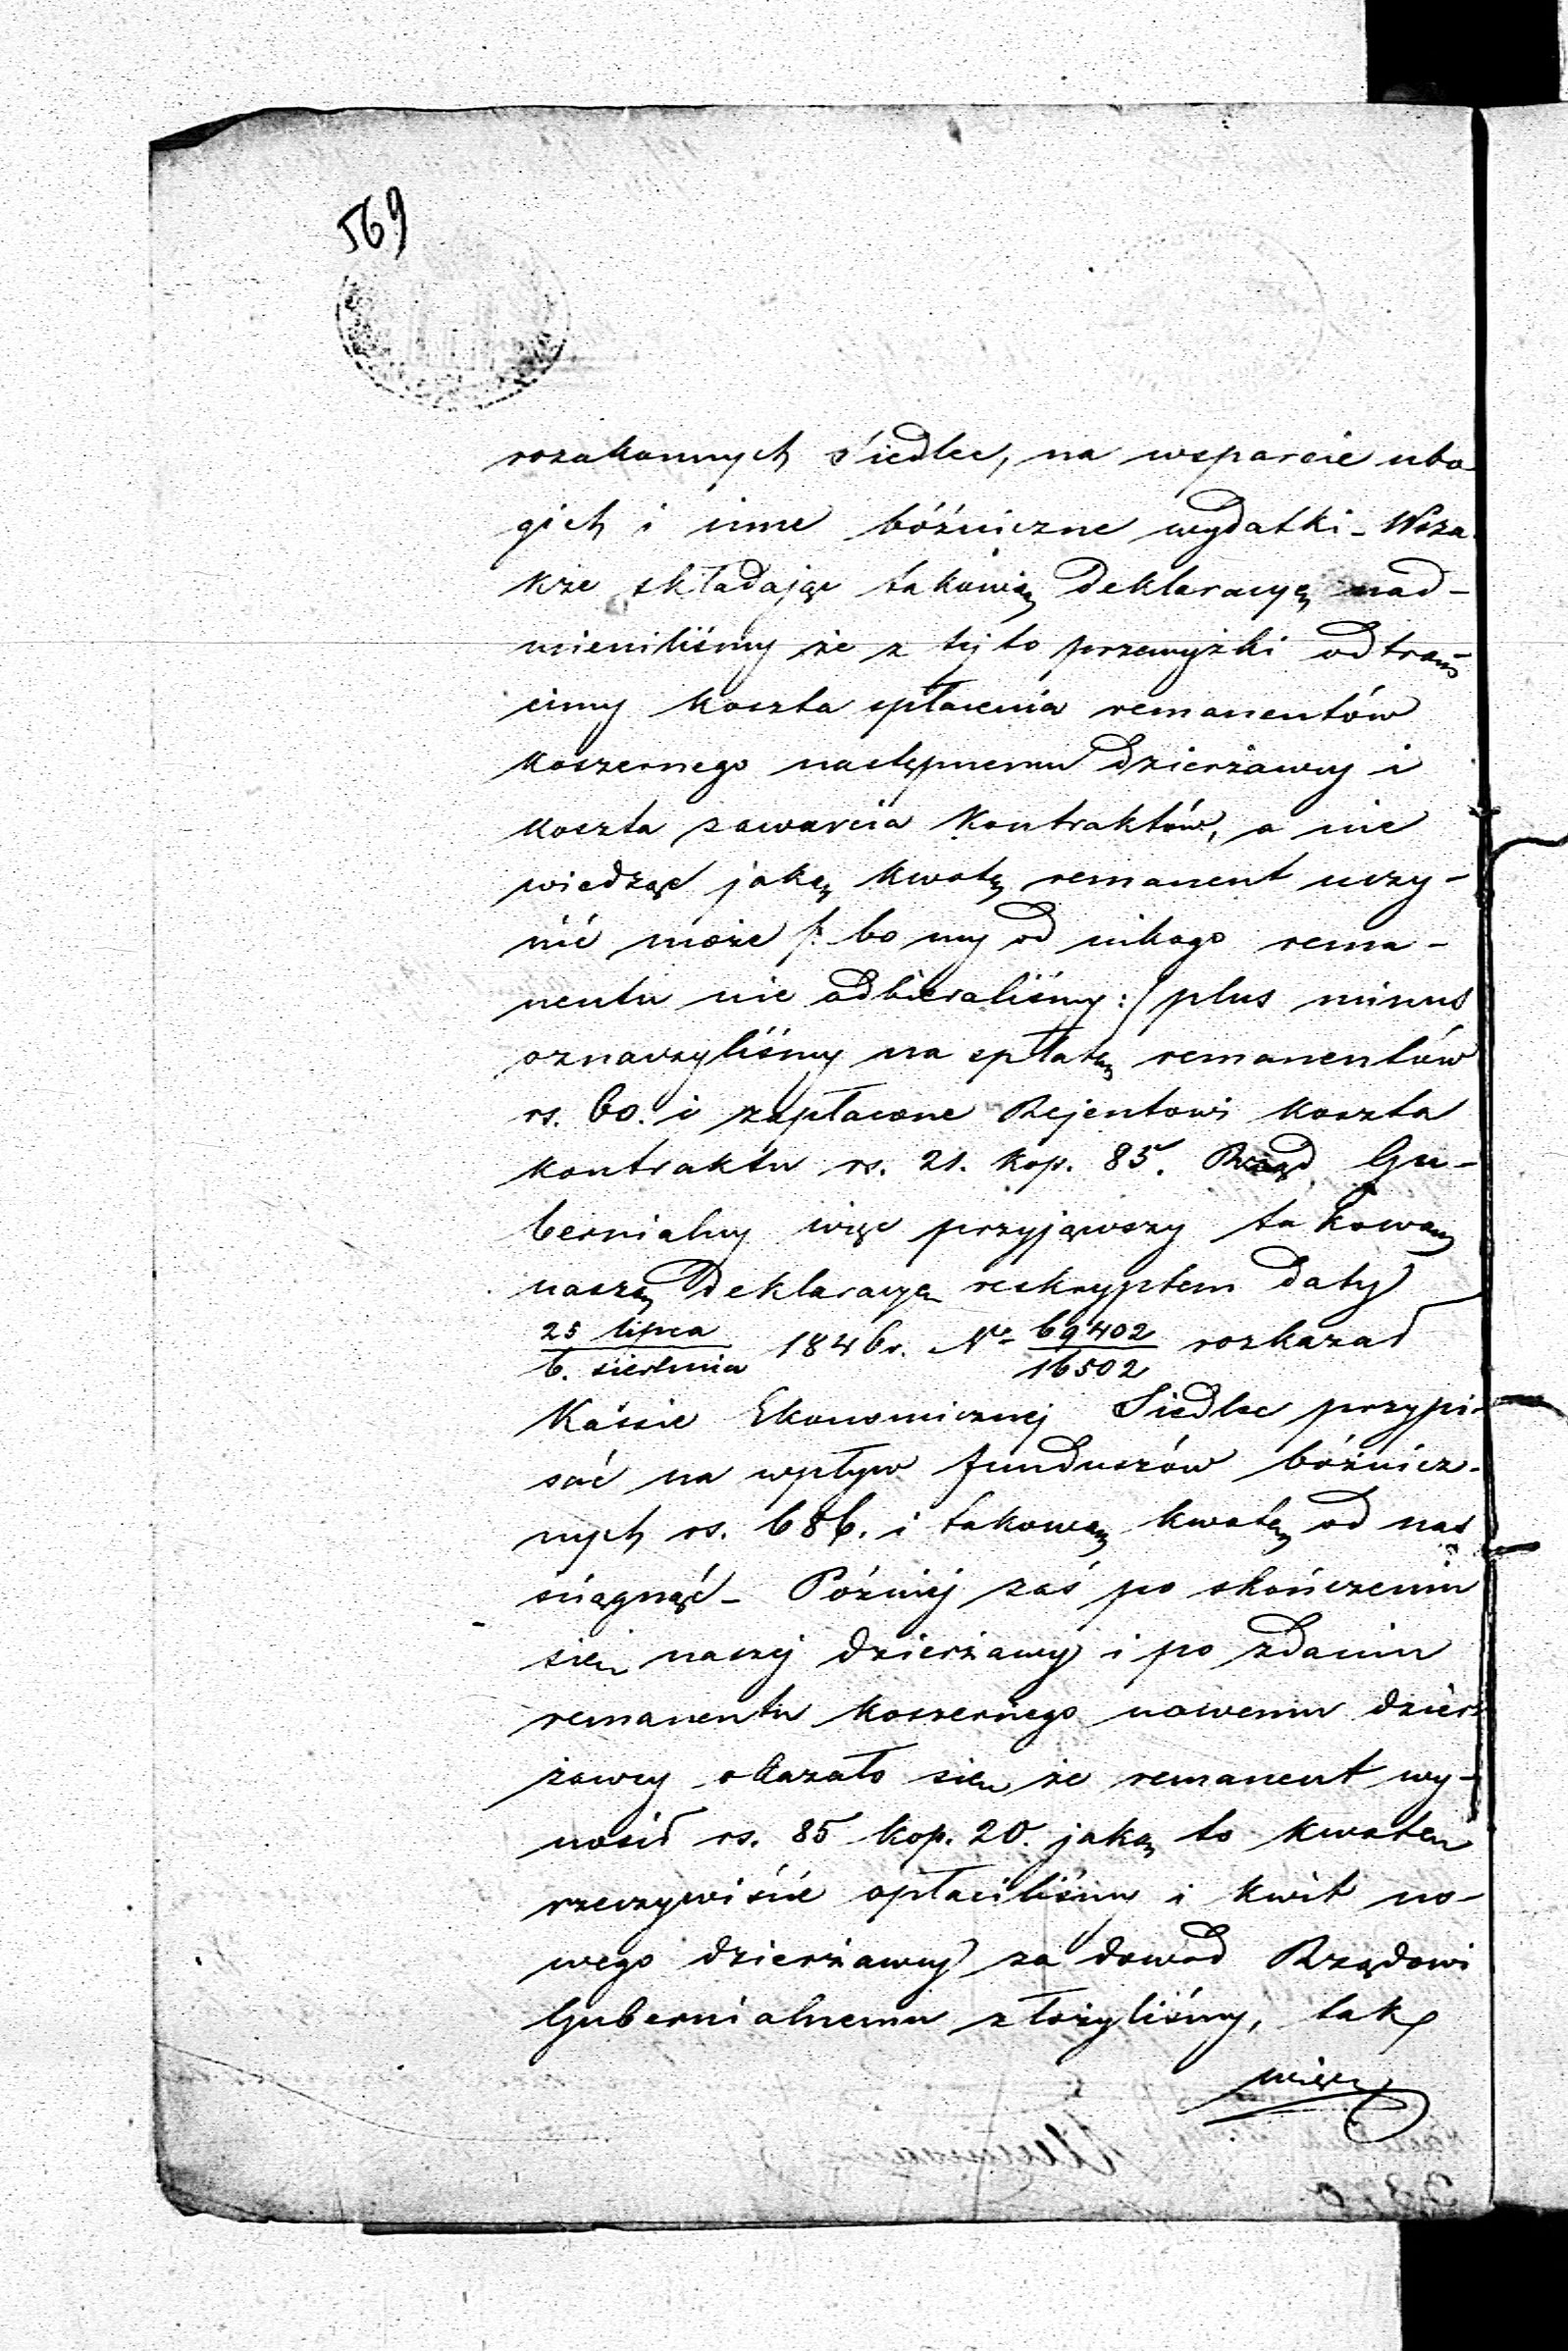 569
rozakonnych Siedlec, na wsparcie ubo-
gich i inne bóżniczne wydatki - Wsza-
kże składając takowię deklaracyę nad-
mieniliśmy że z tej to przewyżki odtrąc-
cimy koszta spłacenia remanentów
koszernego następnemu dzierżawcy i
koszta zawarcia kontraktów, a nie
wiedząc jaką kwotę remanent uczy-
nić może /: bo my od nikogo rema-
nentu nie odbieraliśmy :/ plus minus
oznaczyliśmy na spłatę remanentów
rs. 60. i zapłacone Rejentowi koszta
kontraktu rs. 21. kop. 85. Rząd Gu-
bernialny więc przyjąwszy takową
naszę deklaracyę reskryptem daty
25 lipca / 6. sierpnia 1846 r. No 69402 / 16502 rozkazał
Kassie Ekonomicznej Siedlec przypi-
sać na wpływ funduszów bóżnicz-
nych rs. 686. i takową kwotę od nas
ściągnąć - Później zaś po skończeniu
się naszej dzierżawy i po zdaniu
remanentu koszernego nowemu dzier-
żawcy okazało się że remanent wy-
nosił rs. 85 kop. 20. jaką to kwotę
rzeczywiście opłaciliśmy i kwit no-
wego dzierżawcy za dowód Rządowi
Gubernialnemu złożyliśmy, tak
więc